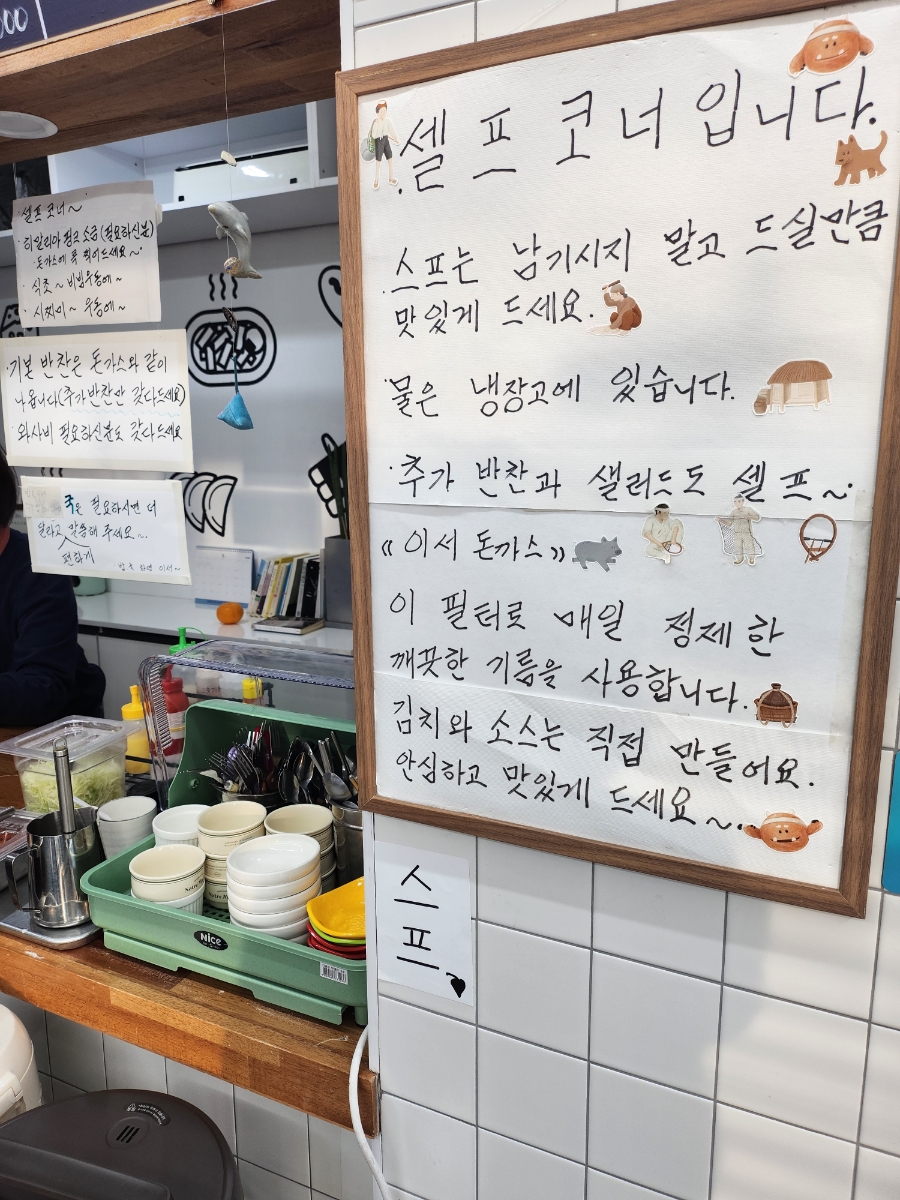 00
셀프 코너~
· 히말리아 핑크 소금(필요하신분)
돈까스에 콕 찍어드세요~
· 식초 ~ 비빔우동에~
· 시찌미 ~ 우동에~
· 기본 반찬은 돈가스와 같이
나옵니다(추가반찬만 갖다드세요)
· 와사비 필요하신분도 갖다드세요
죽은 필요하시면 더
달라고 말씀해 주세요...
편하게
Nice
· 셀프 코너입니다.
· 스프는 남기시지 말고 드실만큼
맛있게 드세요.
· 물은 냉장고에 있습니다.
· 추가 반찬과 샐러드도 셀프~
《이서 돈까스》
이 필터로 매일 정제한
깨끗한 기름을 사용합니다.
김치와 소스는 직접 만들어요.
안심하고 맛있게 드세요~
스
프